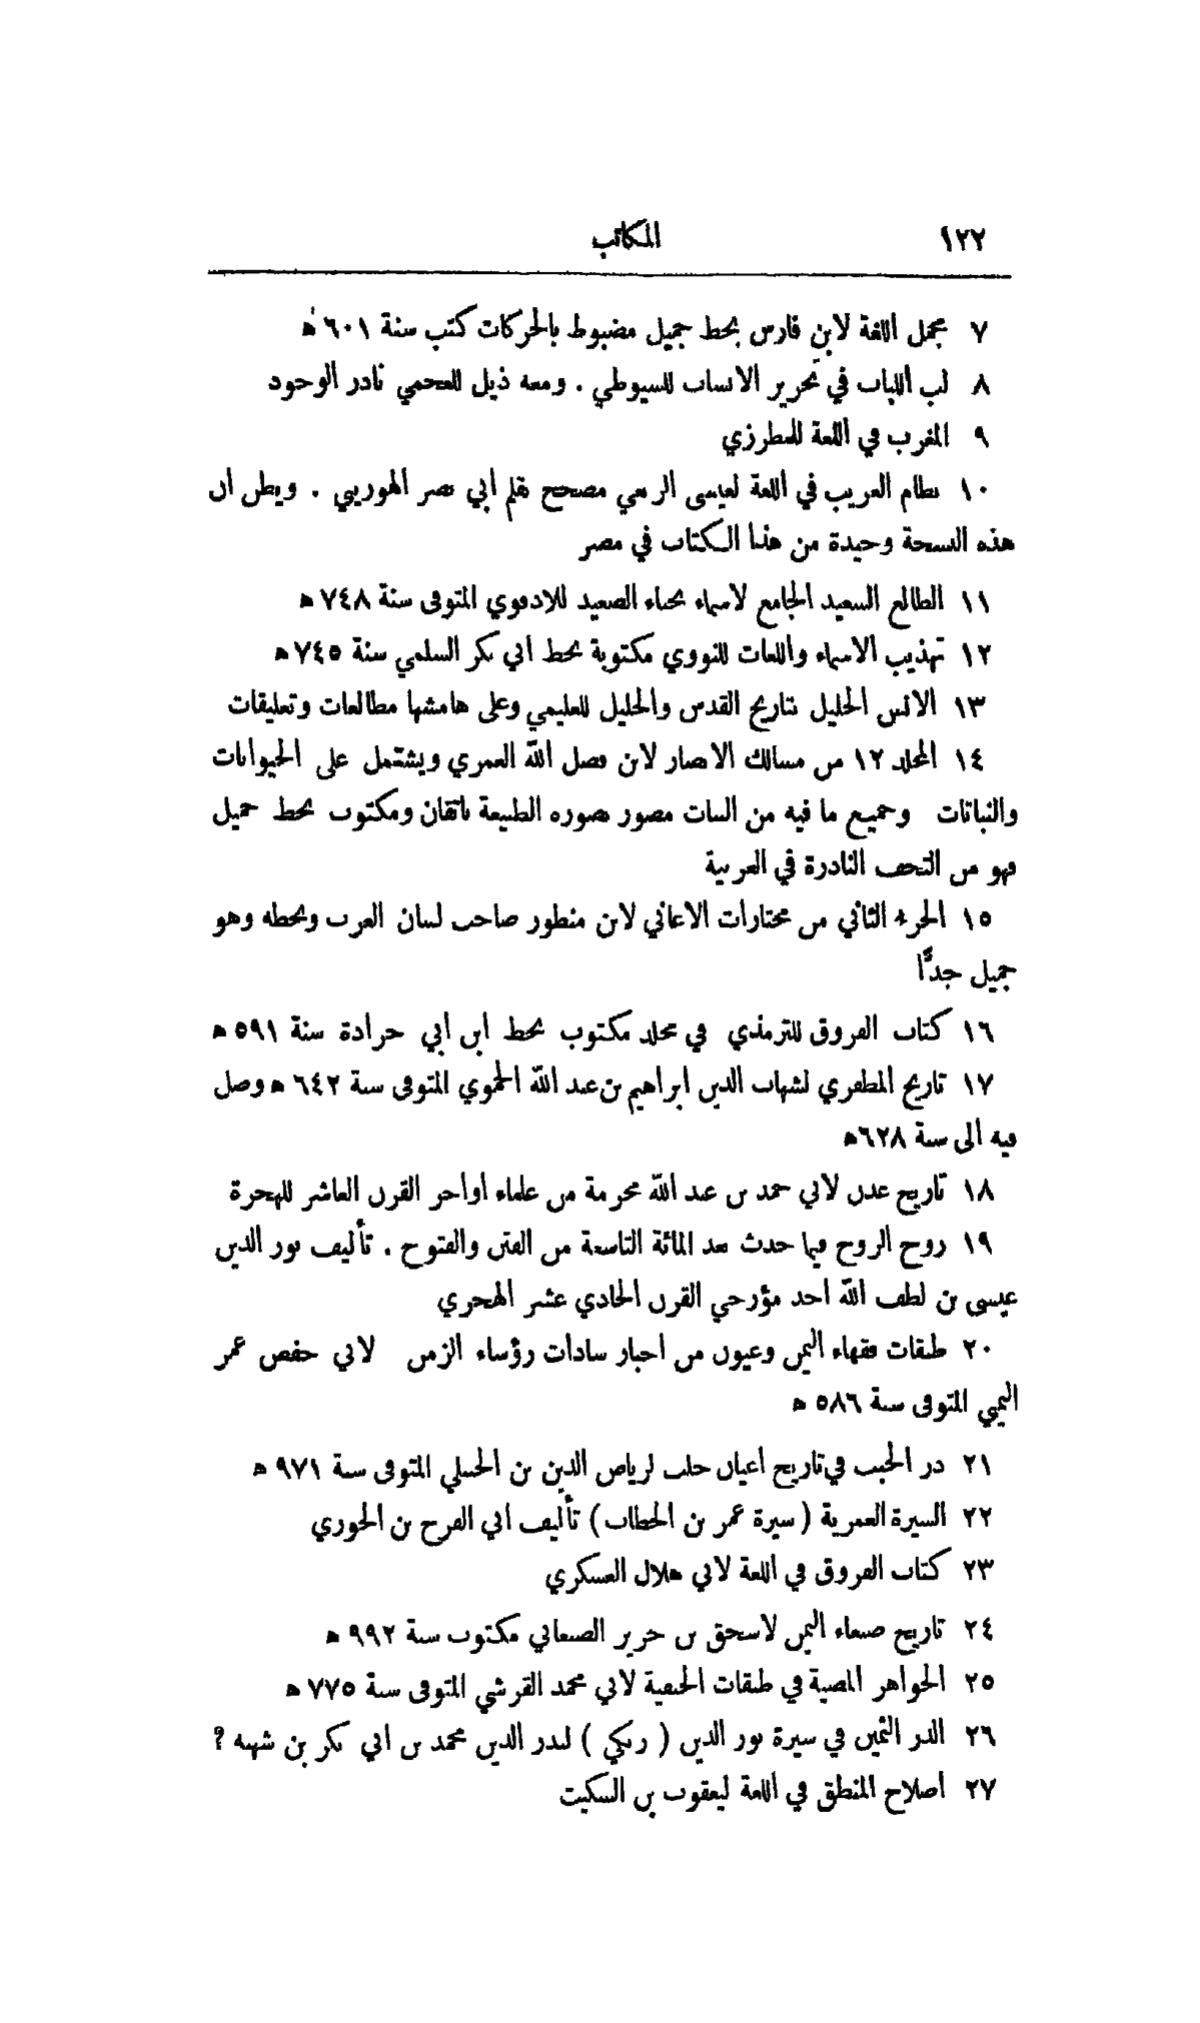 ١٢٢ المكاتب
٧ مجمل اللغة لابن فارس بخط جميل مضبوط بالحركات كتب سنة ٦٠١ ﻫ
٨ لب اللباب في تحرير الانساب للسيوطي . ومعه ذيل للعجمي نادر الوجود
٩ المغرب في اللغة للمطرزي
١٠ نظام الغريب في اللغة لعيسى الربعي مصحح بقلم ابي نصر الهوريني . ويظن ان
هذه النسخة وحيدة من هذا الكتاب في مصر
١١ الطالع السعيد الجامع لاسماء نجباء الصعيد للادفوي المتوفى سنة ٧٤٨ ﻫ
١٢ تهذيب الاسماء واللغات للنووي مكتوبة بخط ابي بكر السلمي سنة ٧٤٥ ﻫ
١٣ الانس الجليل بتاريخ القدس والخليل للعليمي وعلى هامشها مطالعات وتعليقات
١٤ المجلد ١٢ من مسالك الابصار لابن فضل الله العمري ويشتمل على الحيوانات
والنباتات وجميع ما فيه من النبات مصور بصوره الطبيعة باتقان ومكتوب بخط جميل
فهو من التحف النادرة في العربية
١٥ الجزء الثاني من مختارات الاغاني لابن منظور صاحب لسان العرب وبخطه وهو
جميل جدًّا
١٦ كتاب الفروق للترمذي في مجلد مكتوب بخط ابن ابي جرادة سنة ٥٩١ ﻫ
١٧ تاريخ المظفري لشهاب الدين ابراهيم بن عبد الله الحموي المتوفى سنة ٦٤٢ ﻫ وصل
فيه الى سنة ٦٢٨ ﻫ
١٨ تاريخ عدن لابي حمد بن عبد الله مخرمة من علماء اواخر القرن العاشر للهجرة
١٩ روح الروح فيما حدث بعد المائة التاسعة من الفتن والفتوح . تأليف نور الدين
عيسى بن لطف الله احد مؤرخي القرن الحادي عشر الهجري
٢٠ طبقات فقهاء اليمن وعيون من اخبار سادات رؤساء الزمن لابي حفص عمر
اليمني المتوفى سنة ٥٨٦ ﻫ
٢١ در الحبب في تاريخ اعيان حلب لرياض الدين بن الحنبلي المتوفى سنة ٩٧١ ﻫ
٢٢ السيرة العمرية ( سيرة عمر بن الخطاب ) تأليف ابي الفرج بن الجوزي
٢٣ كتاب الفروق في اللغة لابي هلال العسكري
٢٤ تاريخ صنعاء اليمن لاسحق بن جرير الصنعاني مكتوب سنة ٩٩٢ ﻫ
٢٥ الجواهر المضية في طبقات الحنفية لابي محمد القرشي المتوفى سنة ٧٧٥ ﻫ
٢٦ الدر الثمين في سيرة نور الدين ( زنكي ) لبدر الدين محمد بن ابي بكر بن شهبه ؟
٢٧ اصلاح المنطق في اللغة ليعقوب بن السكيت